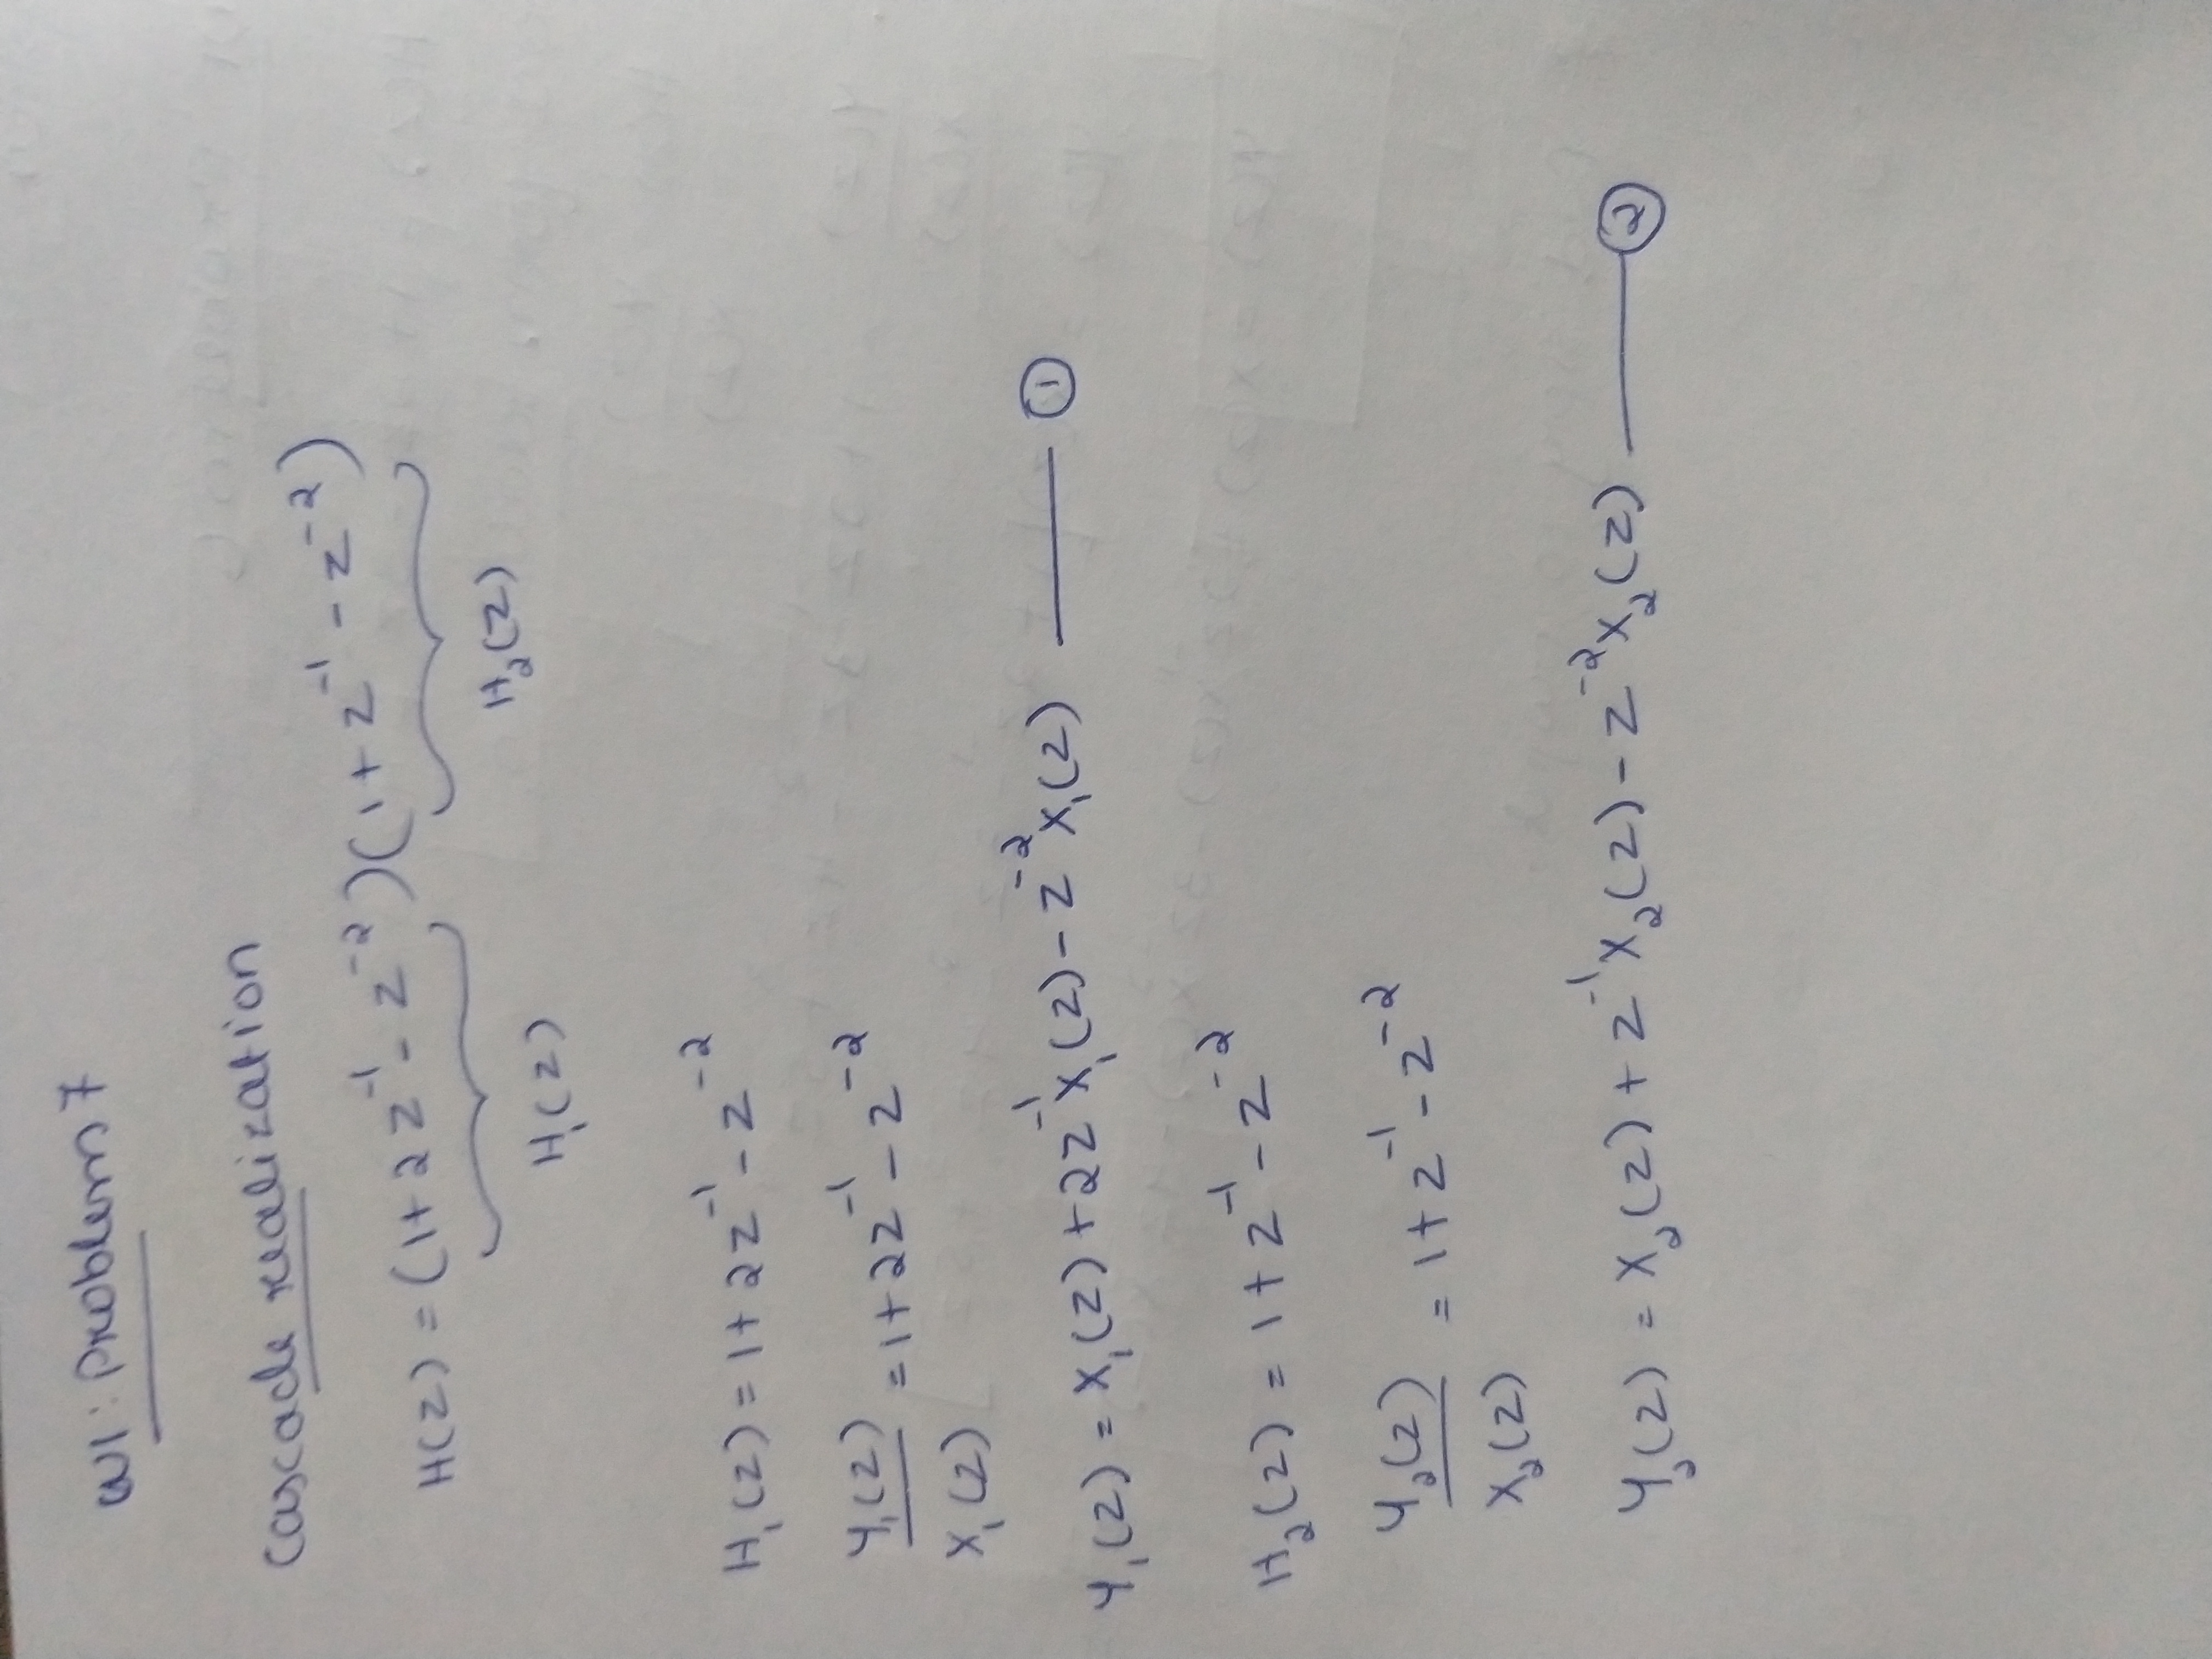 W1: Problem 7
Cascade realization
H(Z) = (1 + 2z⁻¹ - z⁻²)(1 + z⁻¹ - z⁻²)
H₂(Z)
H₁(Z)
H₁(Z) = 1 + 2z⁻¹ - z⁻²
Y₁(Z)
/ X₁(Z) = 1 + 2z⁻¹ - z⁻²
Y₁(Z) = X₁(Z) + 2z⁻¹X₁(Z) - z⁻²X₁(Z) —— ①
H₂(Z) = 1 + z⁻¹ - z⁻²
Y₂(Z)
/ X₂(Z) = 1 + z⁻¹ - z⁻²
Y₂(Z) = X₂(Z) + z⁻¹X₂(Z) - z⁻²X₂(Z) —— ②